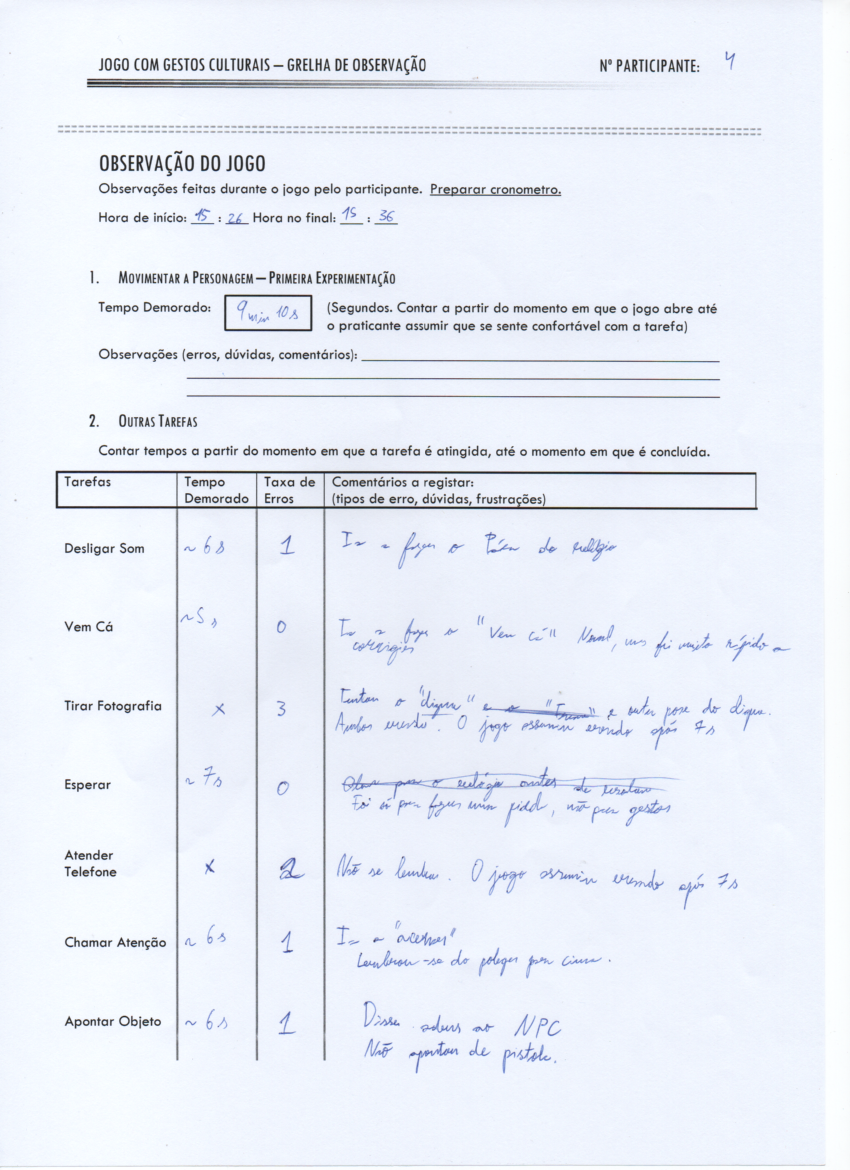 JOGO COM GESTOS CULTURAIS – GRELHA DE OBSERVAÇÃO Nº PARTICIPANTE: 4
OBSERVAÇÃO DO JOGO
Observações feitas durante o jogo pelo participante. Preparar cronometro.
Hora de início: 15 : 26 Hora no final: 15 : 36
1. MOVIMENTAR A PERSONAGEM – PRIMEIRA EXPERIMENTAÇÃO
Tempo Demorado: 9 min 10s (Segundos. Contar a partir do momento em que o jogo abre até
o praticante assumir que se sente confortável com a tarefa)
Observações (erros, dúvidas, comentários):
2. OUTRAS TAREFAS
Contar tempos a partir do momento em que a tarefa é atingida, até o momento em que é concluída.
Tarefas Tempo Taxa de Comentários a registar:
Demorado Erros (tipos de erro, dúvidas, frustrações)
Desligar Som ~ 6s 1 Ia a fazer o do relógio
Vem Cá ~5s 0 Ia a fazer o "Vem Cá" Normal, mas foi muito rápido a
corrigir
Tirar Fotografia x 3 Tentou o "digura" e outra pose do digura.
Ambos errado. O jogo assumiu errado após 7s
Esperar ~ 7s 0
Foi só por fazer mim, não por gestos
Atender
Telefone x 2 Não se lembra. O jogo assumiu errado após 7s
Chamar Atenção ~ 6s 1 Ia a "acenar"
Lembrou-se do polegar por cima.
Apontar Objeto ~ 6s 1 Disse adeus ao NPC
Não apontou de pistola.